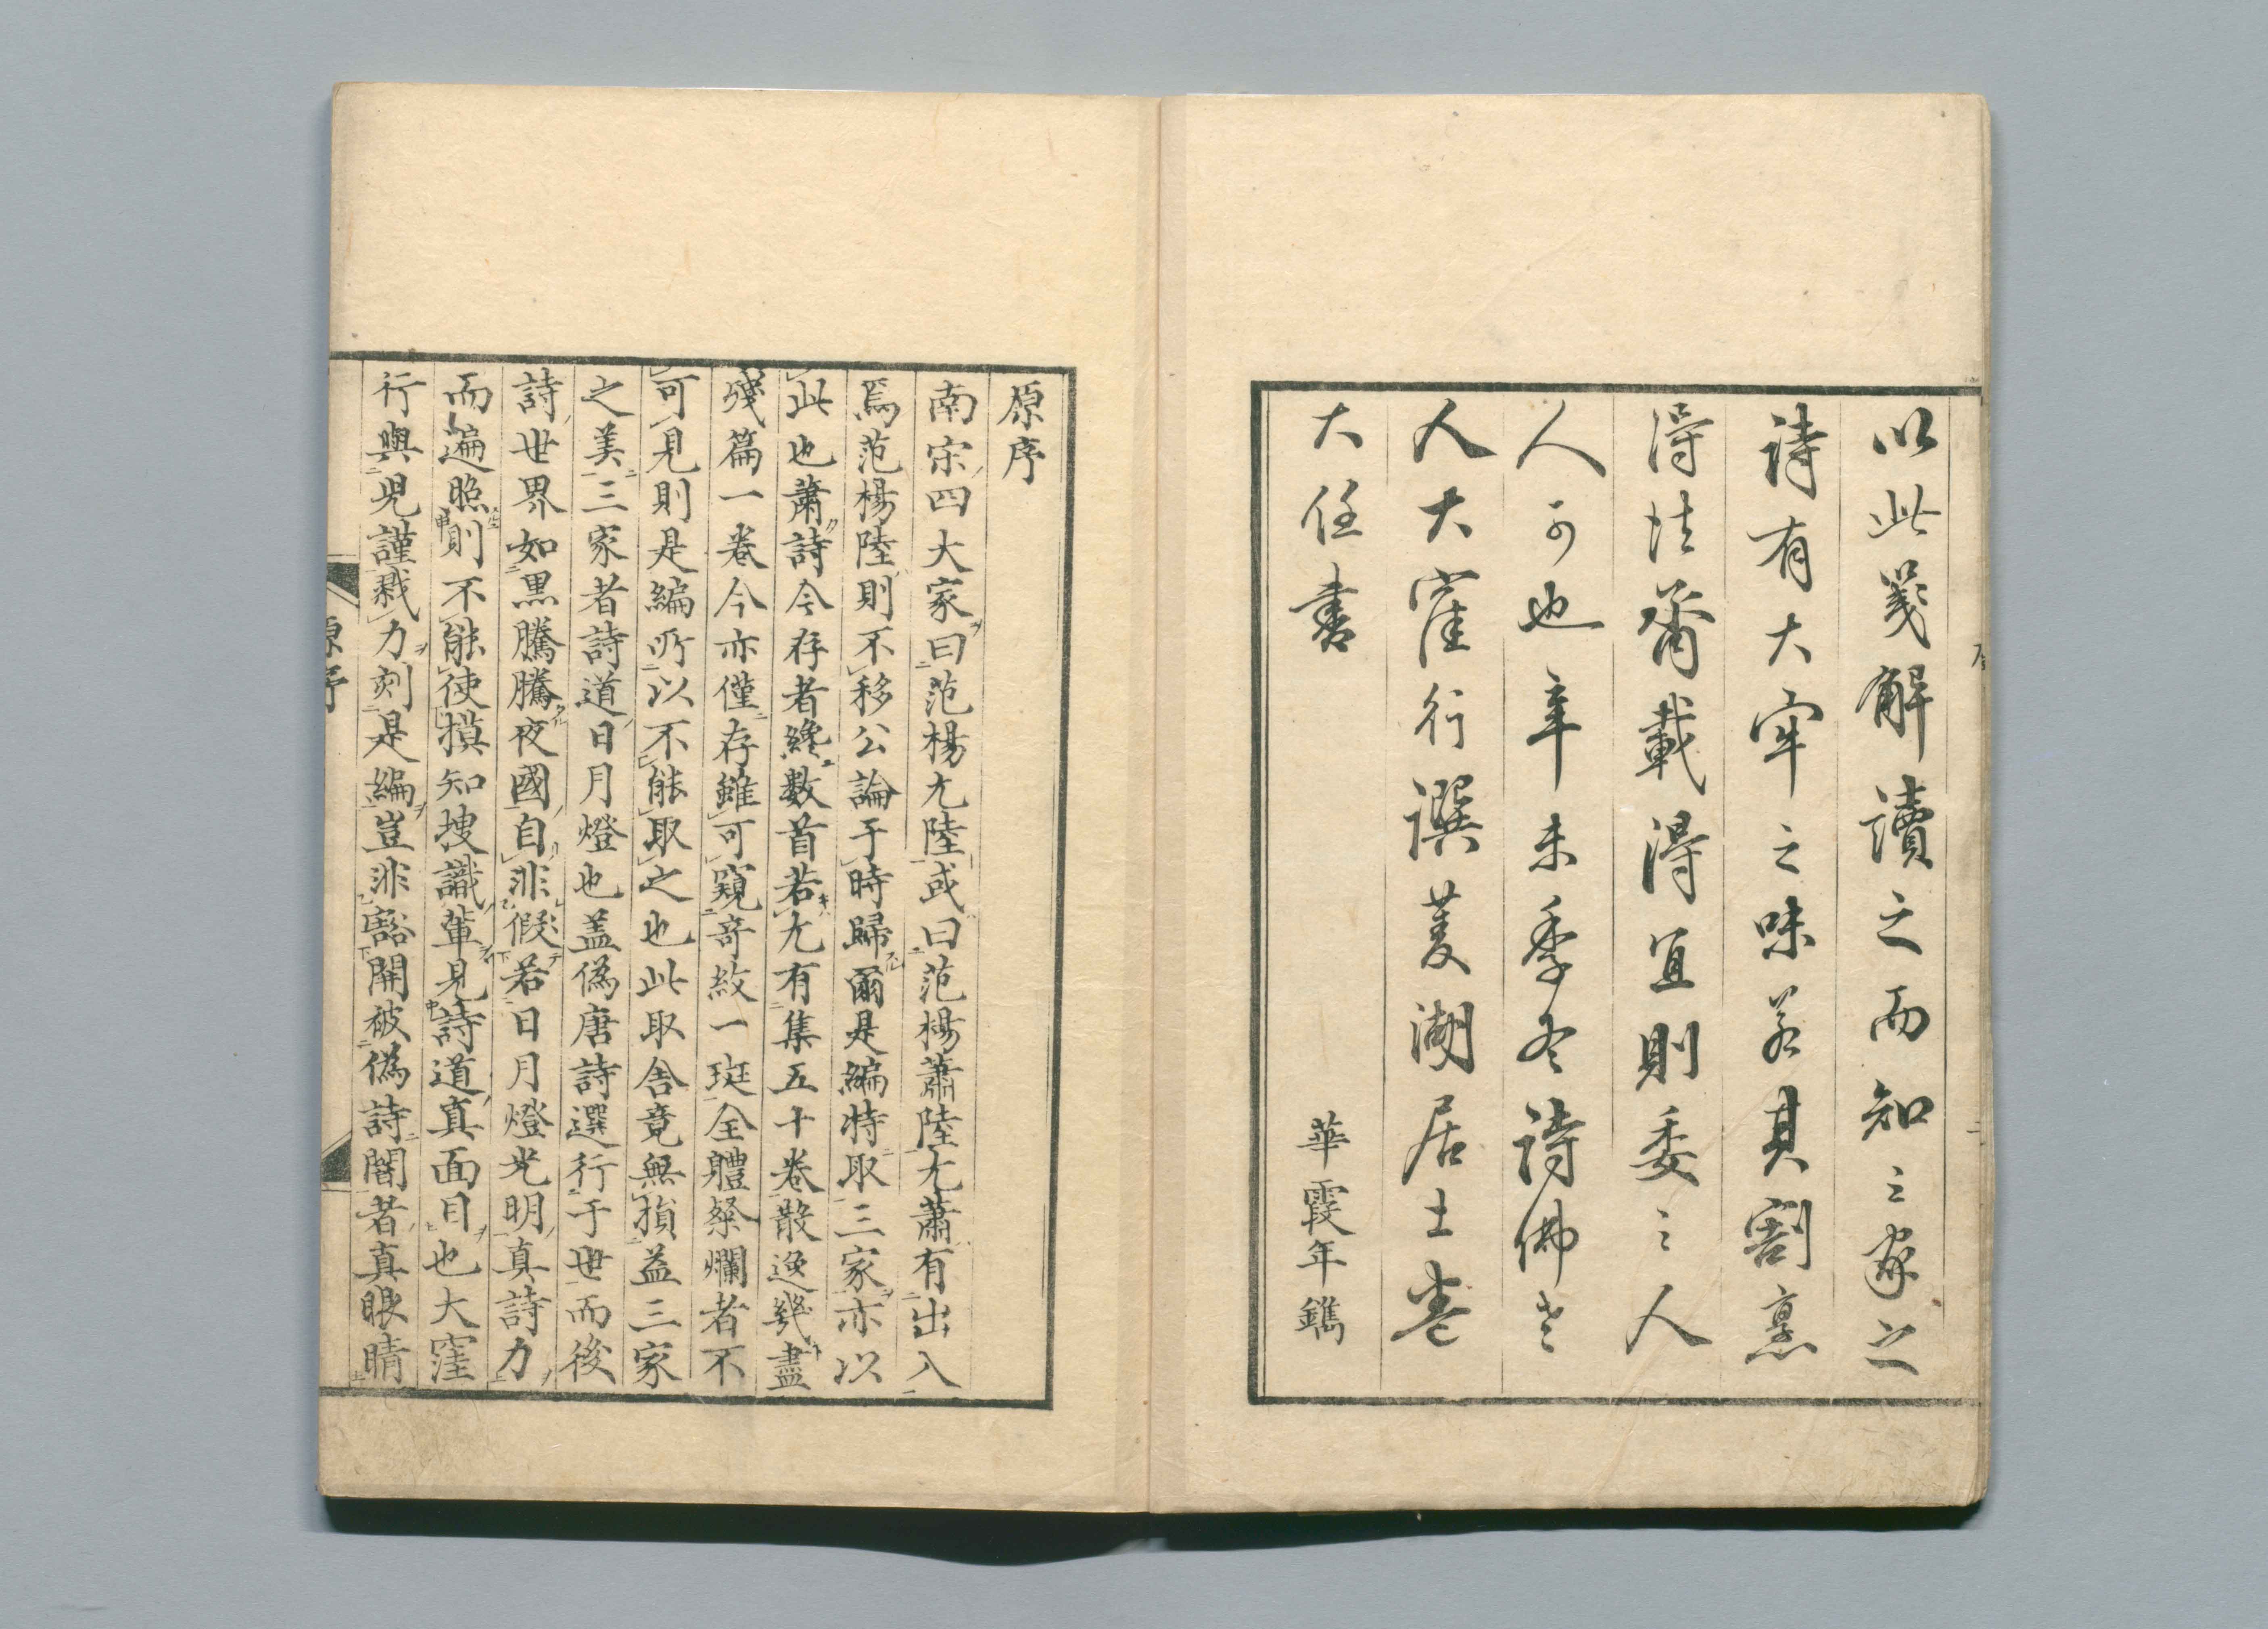 以此箋解讀之而知之家之
詩有大牢之味若其割烹
得法脔載得宜則委之人
人可也辛未季冬詩佛老
人大窪行譔菱湖居士卷
大任書
華霞年鐫
原序
南宋四大家曰范楊尤陸或曰范楊蕭陸尤蕭有出入
焉范楊陸則不移公論于時歸爾是編特取三家亦以
此也蕭詩今存者纔數首若尤有集五十卷散逸幾盡
殘篇一卷今亦僅存雖可窺奇紋一斑全體粲爛者不
可見則是編所以不能取之也此取舍竟無損益三家
之美三家者詩道日月燈也蓋偽唐詩選行于世而後
詩世界如黒騰騰夜國自非假若日月燈光明真詩力
而遍照則不能使摸知搜識輩見詩道真面目也大窪
行與兒謹裁力刻是編豈非豁開被偽詩闇者真眼睛
原序